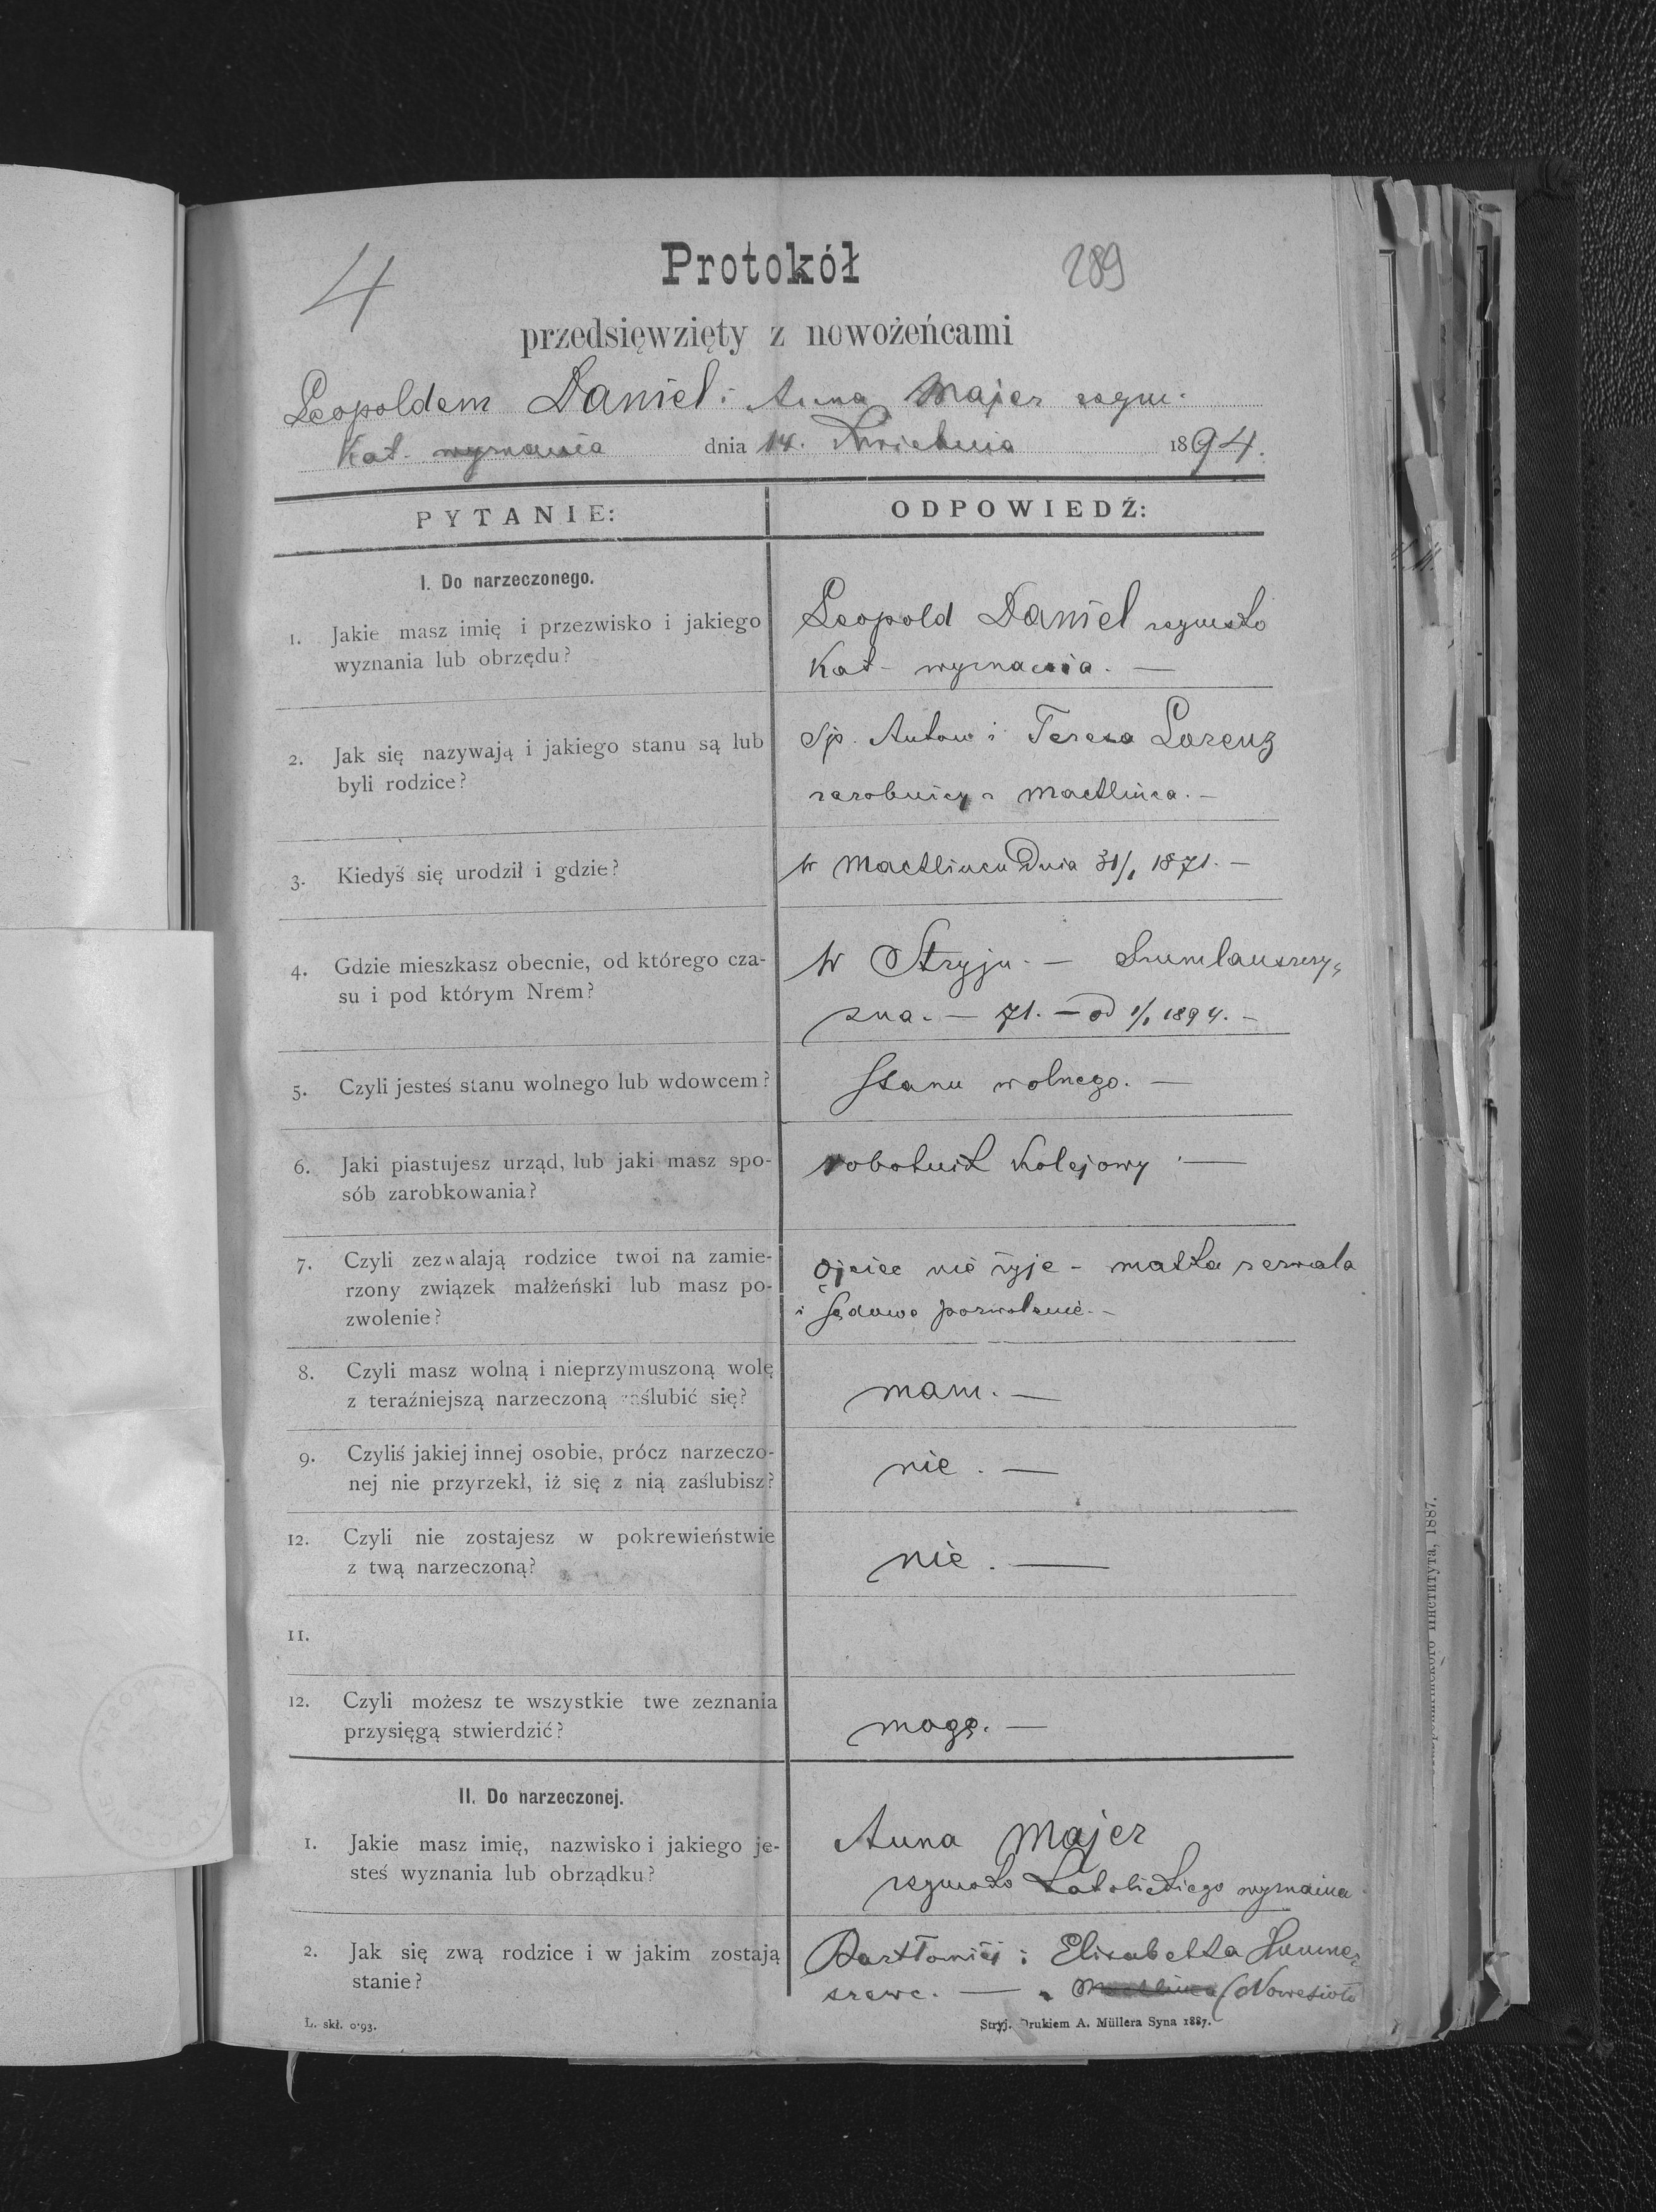 4
Protokół
289
przedsięwzięty z nowożeńcami
Leopoldem Daniel i Anna Majer rzym.
Kat. wyznania dnia 14. Kwietnia 1894.
PYTANIE:
ODPOWIEDŹ:
I. Do narzeczonego.
1. Jakie masz imię i przezwisko i jakiego
wyznania lub obrzędu?
Leopold Daniel rzymsko
Kat- wyznania. —
2. Jak się nazywają i jakiego stanu są lub
byli rodzice?
Sp. Anton i Teresa Lorenz
zarobnicy z Machlinca. —
3. Kiedyś się urodził i gdzie?
w Machlincu Dnia 31/1 1871. —
4. Gdzie mieszkasz obecnie, od którego cza-
su i pod którym Nrem?
w Stryju. — Szumlańszczy-
zna. — 71. — od 1/1 1894. —
5. Czyli jesteś stanu wolnego lub wdowcem?
Stanu wolnego. —
6. Jaki piastujesz urząd, lub jaki masz spo-
sób zarobkowania?
robotnik kolejowy. —
7. Czyli zezwalają rodzice twoi na zamie-
rzony związek małżeński lub masz po-
zwolenie?
Ojciec nie żyje - matka zezwala
i Sądowe pozwolenie. —
8. Czyli masz wolną i nieprzymuszoną wolę
z teraźniejszą narzeczoną zaślubić się?
mam. —
9. Czyliś jakiej innej osobie, prócz narzeczo-
nej nie przyrzekł, iż się z nią zaślubisz?
nie. —
12. Czyli nie zostajesz w pokrewieństwie
z twą narzeczoną?
nie. —
11.
12. Czyli możesz te wszystkie twe zeznania
przysięgą stwierdzić?
mogę. —
II. Do narzeczonej.
1. Jakie masz imię, nazwisko i jakiego je-
steś wyznania lub obrządku?
Anna Majer
rzymsko Katolickiego wyznania
2. Jak się zwą rodzice i w jakim zostają
stanie?
Bartłomiéj i Elisabetha
szewc. — z Machlinca (Nowesioło
L. skł. 0·93.
Stryj. Drukiem A. Müllera Syna 1887.
института, 1887.